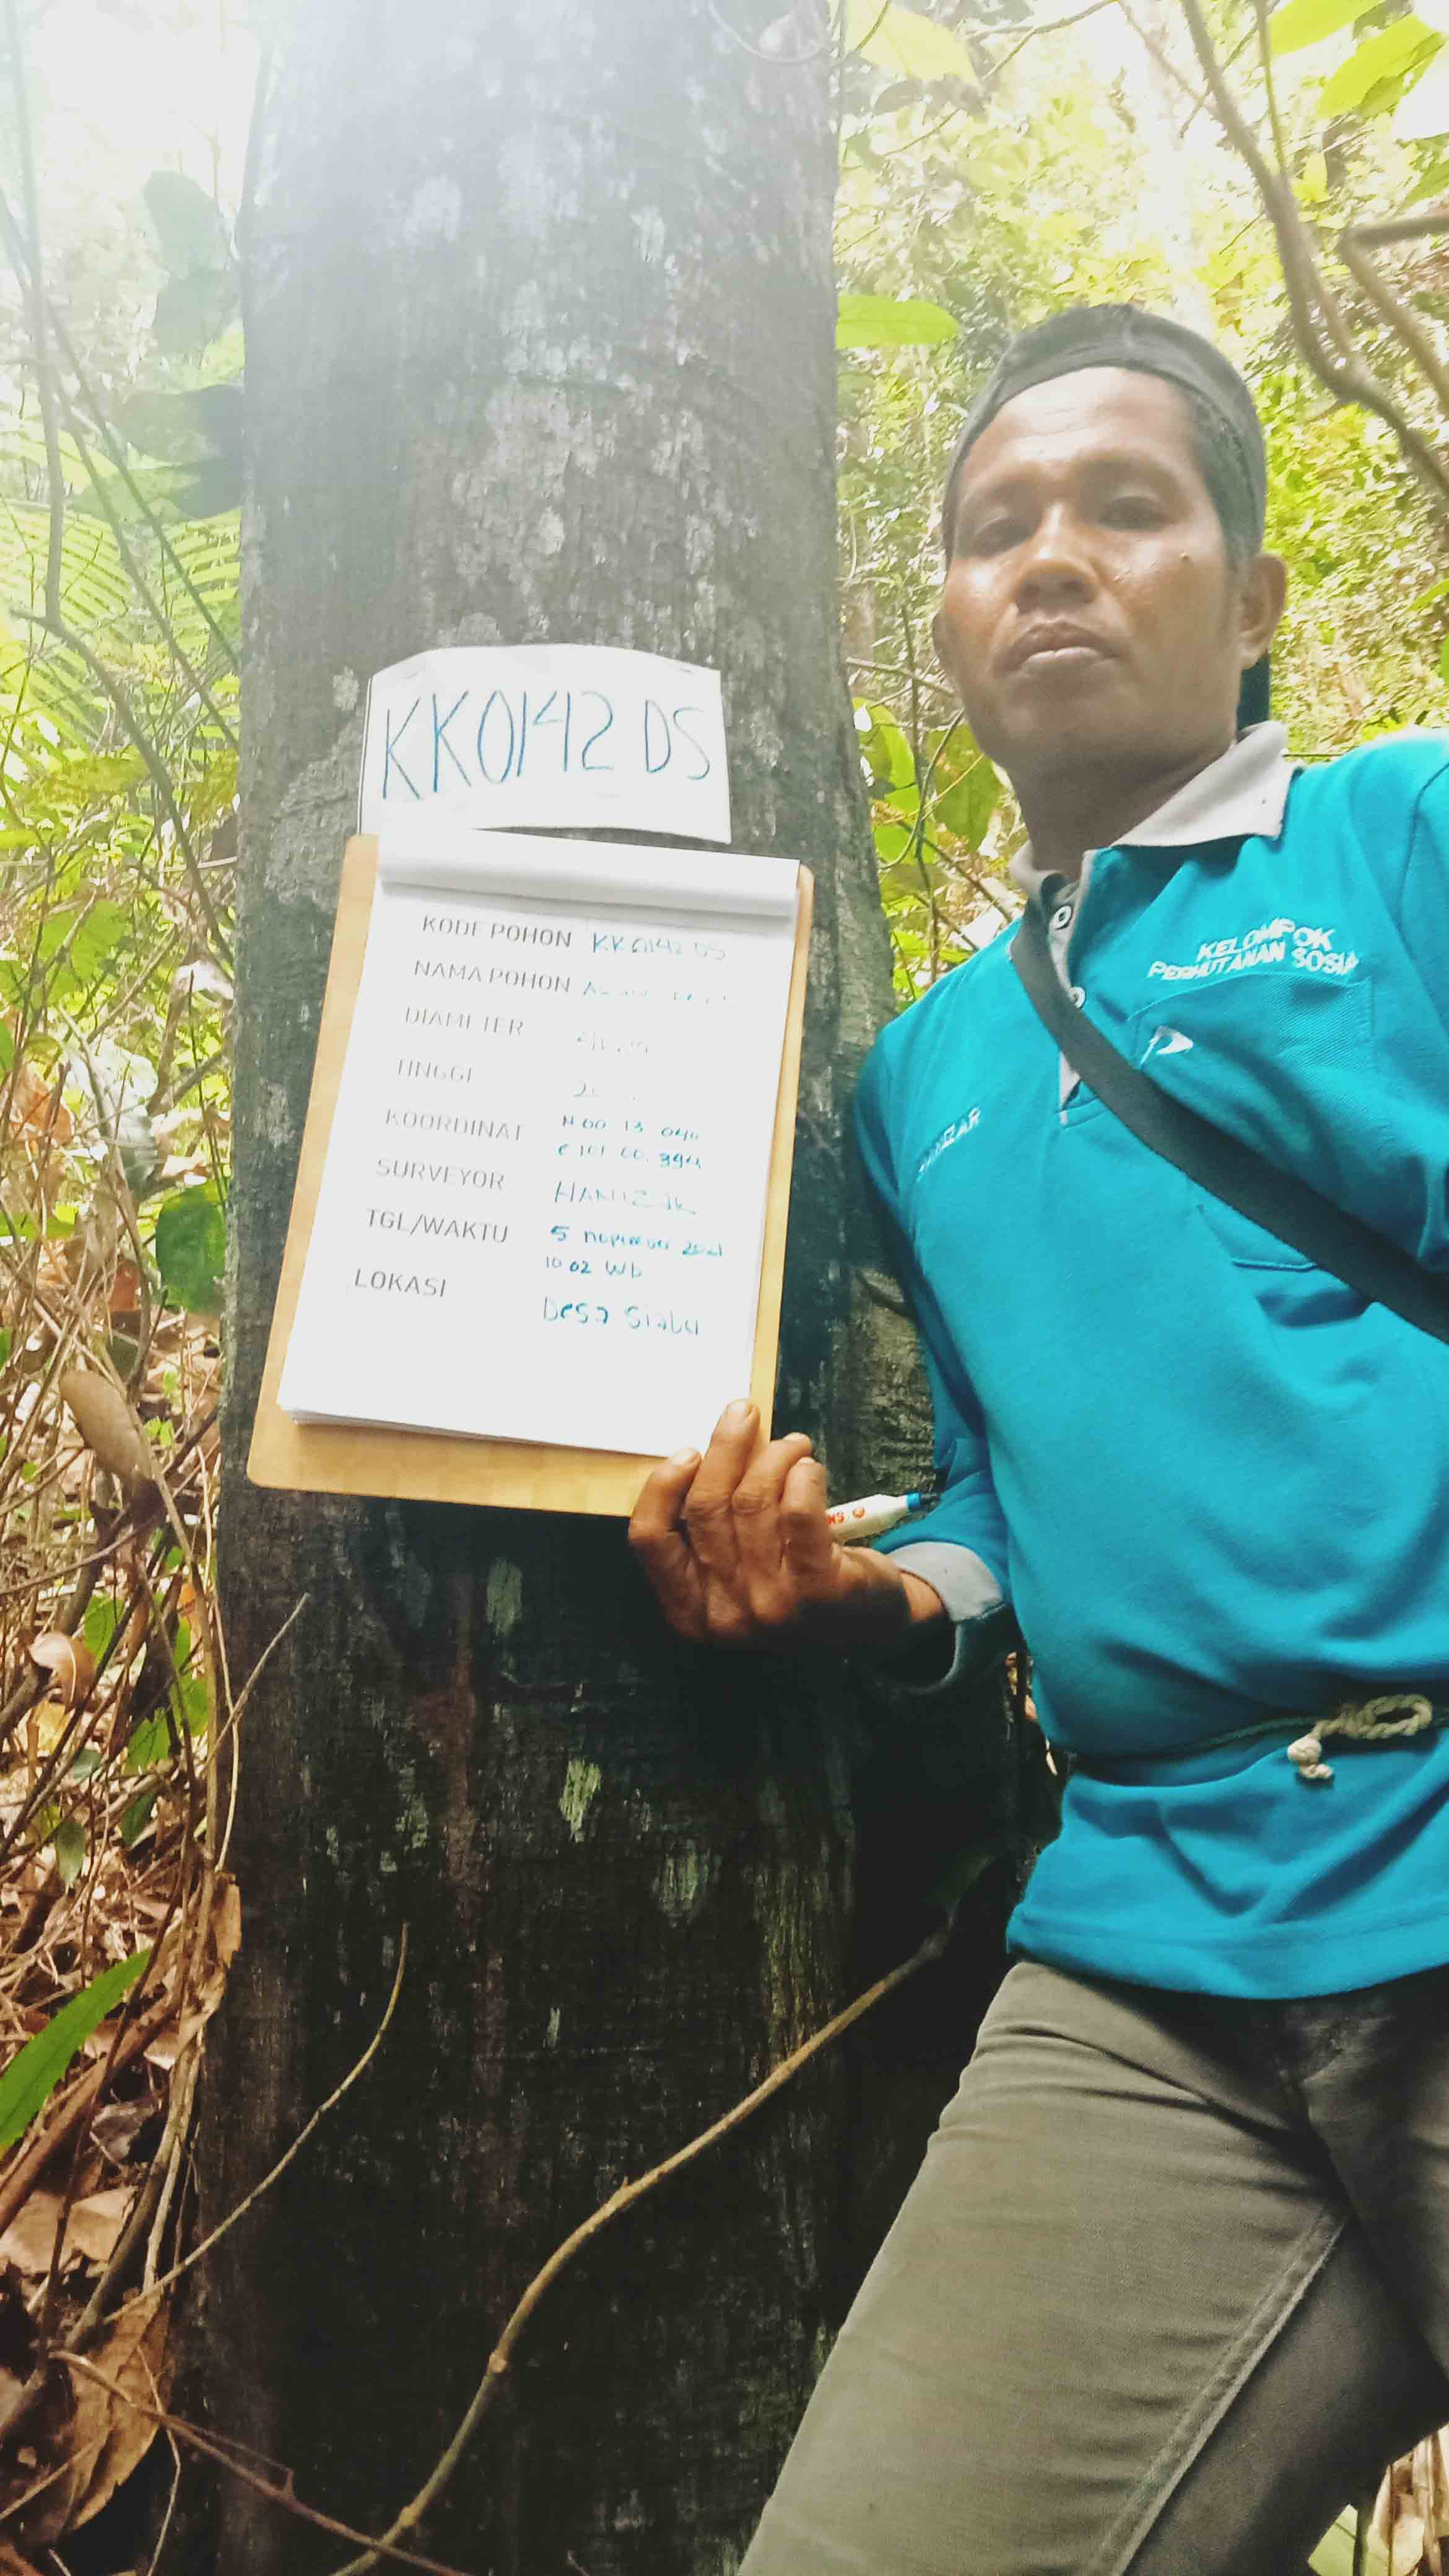 KK0142 DS
KODE POHON KK0142 DS
NAMA POHON
DIAMETER
TINGGI
KOORDINAT N 00 13 040
E 101 00. 394
SURVEYOR HAMIZAR
TGL/WAKTU 5 nopember 2021
10 02 Wib
LOKASI Desa Siabu
KELOMPOK
PERHUTANAN SOSIA